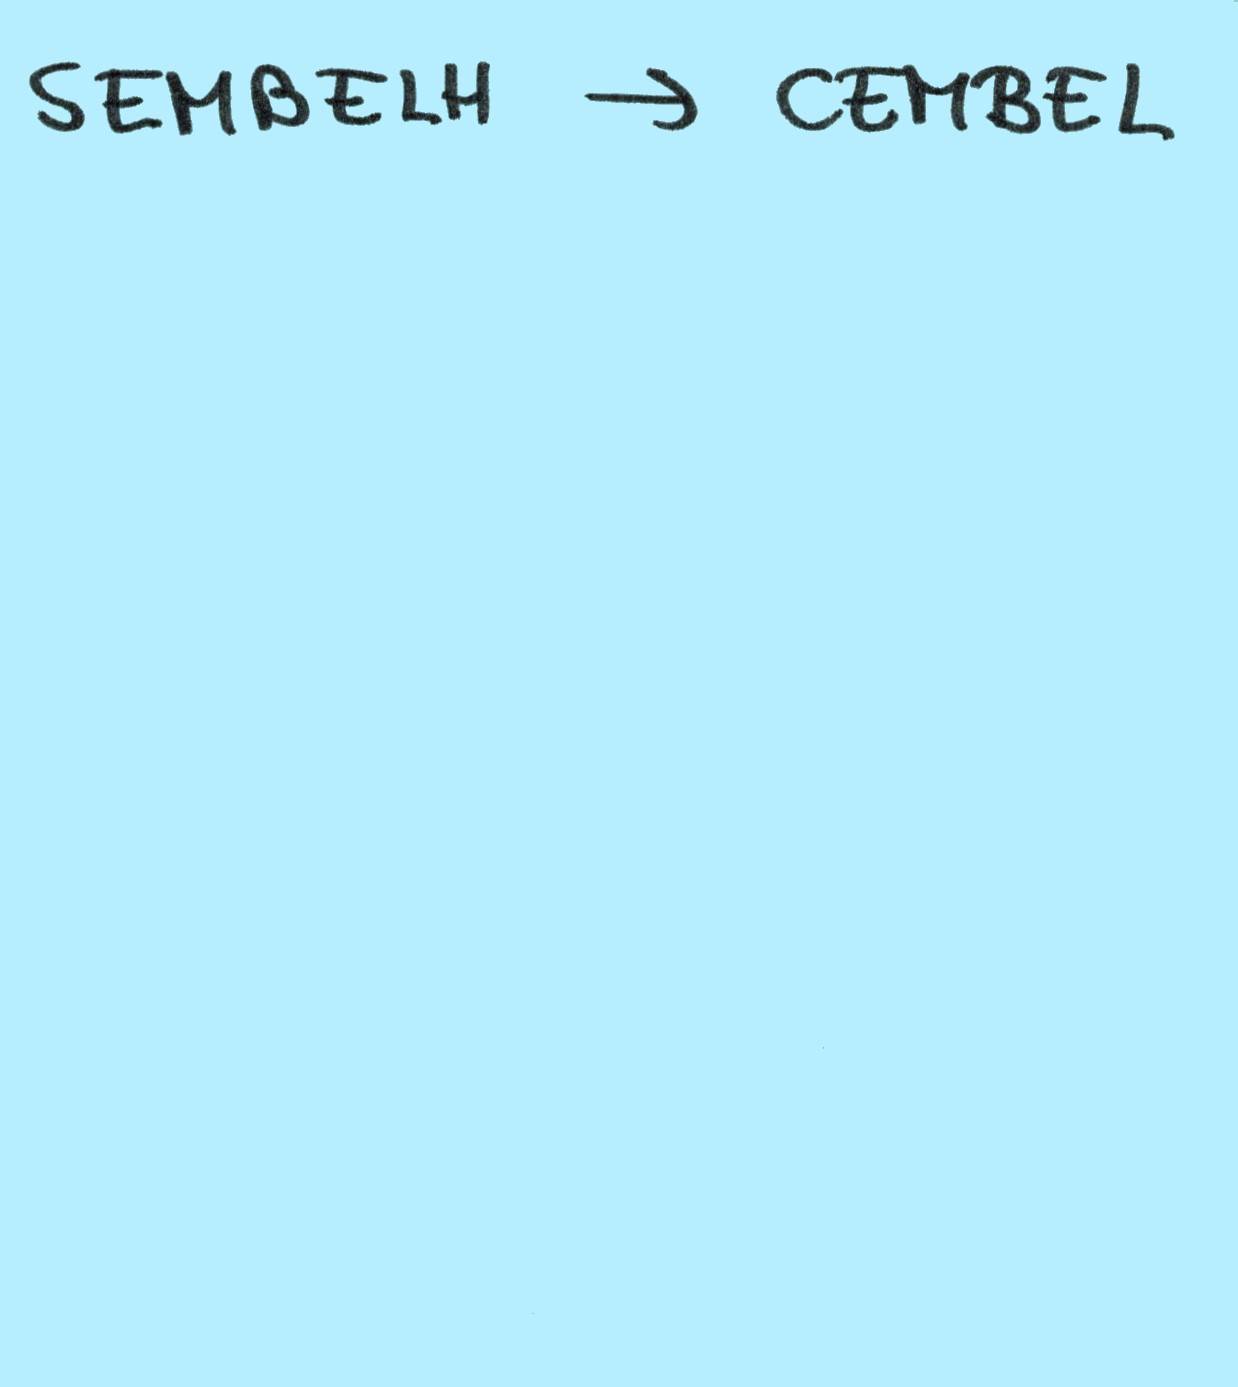 SEMBELH → CEMBEL